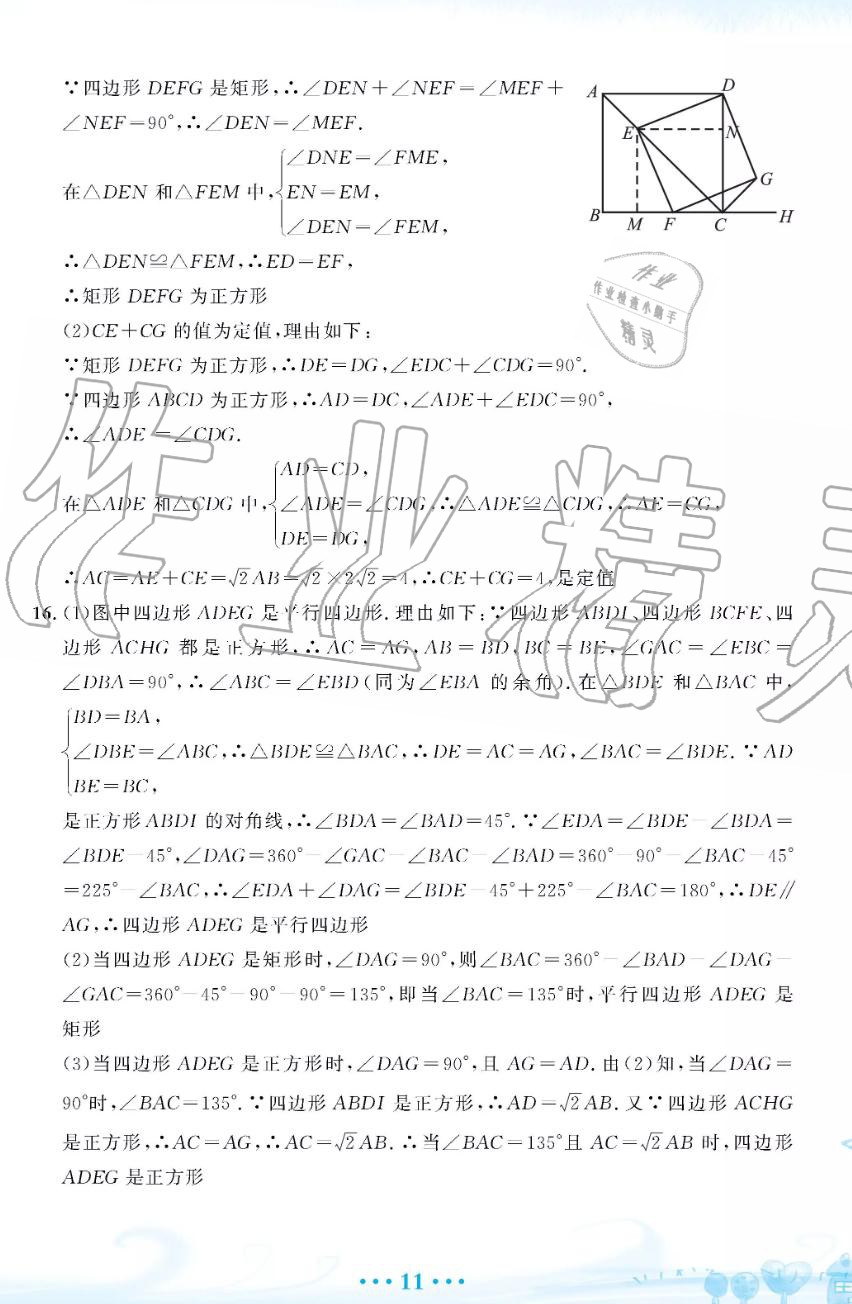 ∵四边形 DEFG 是矩形,∴∠DEN+∠NEF=∠MEF+
∠NEF=90°,∴∠DEN=∠MEF.
在△DEN 和△FEM 中,{∠DNE=∠FME,
EN=EM,
∠DEN=∠FEM,
∴△DEN≌△FEM,∴ED=EF,
∴矩形 DEFG 为正方形
A
D
E
N
G
B
M
F
C
H
作业
作业检查小助手
精灵
(2)CE+CG 的值为定值,理由如下:
∵矩形 DEFG 为正方形,∴DE=DG,∠EDC+∠CDG=90°.
∵四边形 ABCD 为正方形,∴AD=DC,∠ADE+∠EDC=90°,
∴∠ADE=∠CDG.
在△ADE 和△CDG 中,{AD=CD,
∠ADE=∠CDG,∴△ADE≌△CDG,∴AE=CG,
DE=DG,
∴AC=AE+CE=√2AB=√2×2√2=4,∴CE+CG=4,是定值
16.(1)图中四边形 ADEG 是平行四边形.理由如下:∵四边形 ABDI、四边形 BCFE、四
边形 ACHG 都是正方形,∴AC=AG,AB=BD,BC=BE,∠GAC=∠EBC=
∠DBA=90°,∴∠ABC=∠EBD(同为∠EBA 的余角).在△BDE 和△BAC 中,
{BD=BA,
∠DBE=∠ABC,∴△BDE≌△BAC,∴DE=AC=AG,∠BAC=∠BDE.∵AD
BE=BC,
是正方形 ABDI 的对角线,∴∠BDA=∠BAD=45°.∵∠EDA=∠BDE-∠BDA=
∠BDE-45°,∠DAG=360°-∠GAC-∠BAC-∠BAD=360°-90°-∠BAC-45°
=225°-∠BAC,∴∠EDA+∠DAG=∠BDE-45°+225°-∠BAC=180°,∴DE∥
AG,∴四边形 ADEG 是平行四边形
(2)当四边形 ADEG 是矩形时,∠DAG=90°,则∠BAC=360°-∠BAD-∠DAG-
∠GAC=360°-45°-90°-90°=135°,即当∠BAC=135°时,平行四边形 ADEG 是
矩形
(3)当四边形 ADEG 是正方形时,∠DAG=90°,且 AG=AD.由(2)知,当∠DAG=
90°时,∠BAC=135°.∵四边形 ABDI 是正方形,∴AD=√2AB.又∵四边形 ACHG
是正方形,∴AC=AG,∴AC=√2AB.∴当∠BAC=135°且 AC=√2AB 时,四边形
ADEG 是正方形
作业精灵
···11···